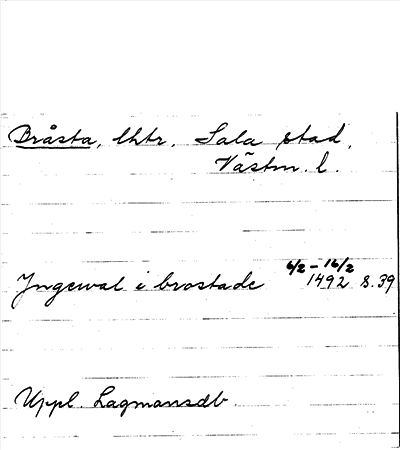 Bråsta, lhtr. Sala stad,
Västm. l.
6/2 - 16/2
Jngewal i brostade 1492 s. 39
Uppl. Lagmansdb.